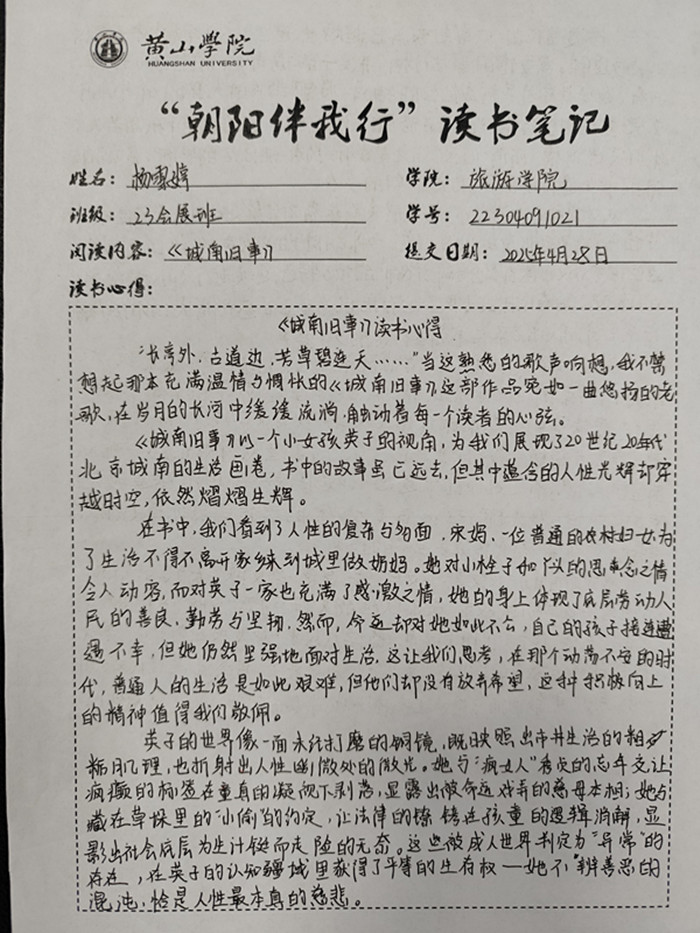 黄山学院
HUANGSHAN UNIVERSITY
“朝阳伴我行”读书笔记
姓名：杨雪婷 学院：旅游学院
班级：23会展班 学号：22304091021
阅读内容：《城南旧事》 提交日期：2025年4月28日
读书心得：
《城南旧事》读书心得
“长亭外，古道边，芳草碧连天……”当这熟悉的歌声响想，我不禁
想起那本充满温情与惆怅的《城南旧事》，这部作品宛如一曲悠扬的老
歌，在岁月的长河中缓缓流淌，触动着每一个读者的心弦。
《城南旧事》以一个小女孩英子的视角，为我们展现了20世纪20年代
北京城南的生活画卷，书中的故事虽已远去，但其中蕴含的人性光辉却穿
越时空，依然熠熠生辉。
在书中，我们看到了人性的复杂与多面，宋妈，一位普通的农村妇女，为
了生活不得不离开家乡来到城里做奶妈。她对小栓子和丫头的思念之情
令人动容，而对英子一家也充满了感激之情，她的身上体现了底层劳动人
民的善良、勤劳与坚韧，然而，命运却对她如此不公，自己的孩子接连遭
遇不幸，但她仍然坚强地面对生活，这让我们思考，在那个动荡不安的时
代，普通人的生活是如此艰难，但他们却没有放弃希望，这种积极向上
的精神值得我们敬佩。
英子的世界像一面未经打磨的铜镜，既映照出市井生活的粗
粝肌理，也折射出人性幽微处的微光。她与“疯女人”秀贞的忘年交让
疯癫的标签在童真的凝视下剥落，显露出被命运戏弄的慈母本相；她与
藏在草垛里的“小偷”的约定，让法律的镣铐在孩童的逻辑消解，显
影出社会底层为生计铤而走险的无奈。这些被成人世界判定为“异常”的
存在，在英子的认知疆域里获得了平等的生存权——她不“辨善恶的
混沌，恰是人性最本真的慈悲。